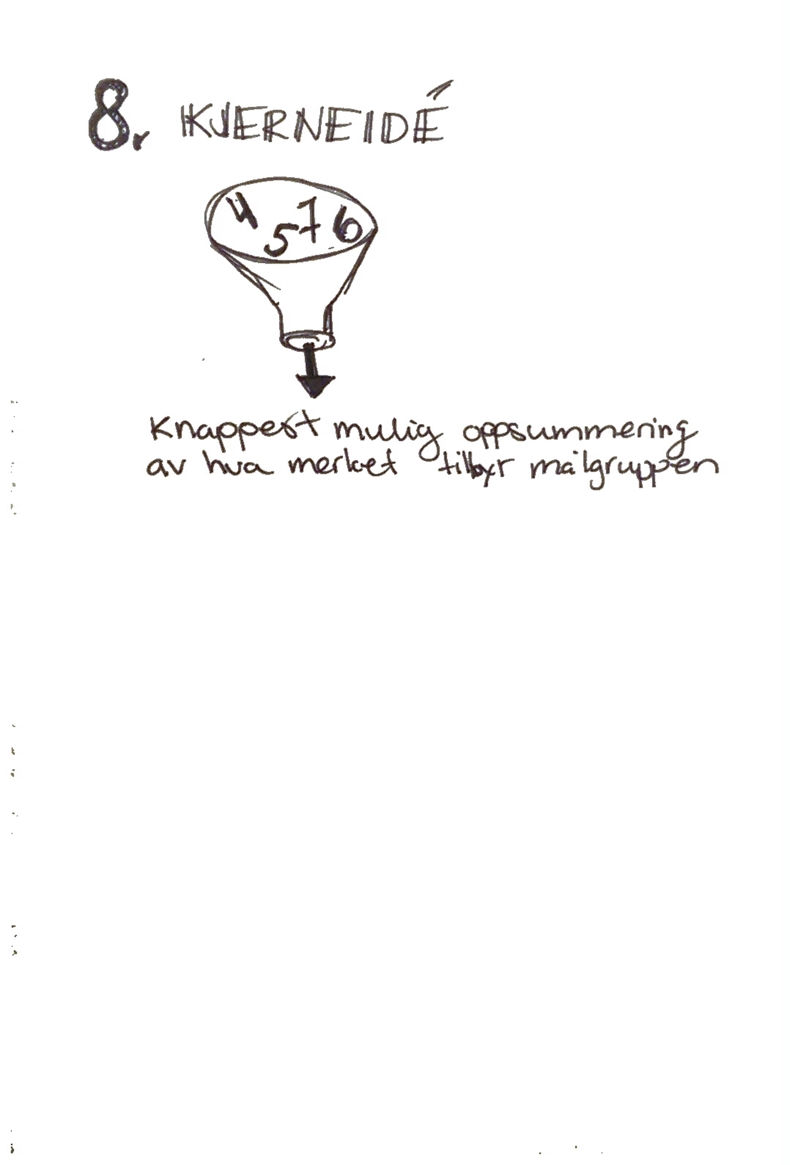 8. KJERNEIDÉ
4 5 7 6
Knappest mulig oppsummering
av hva merket tilbyr målgruppen